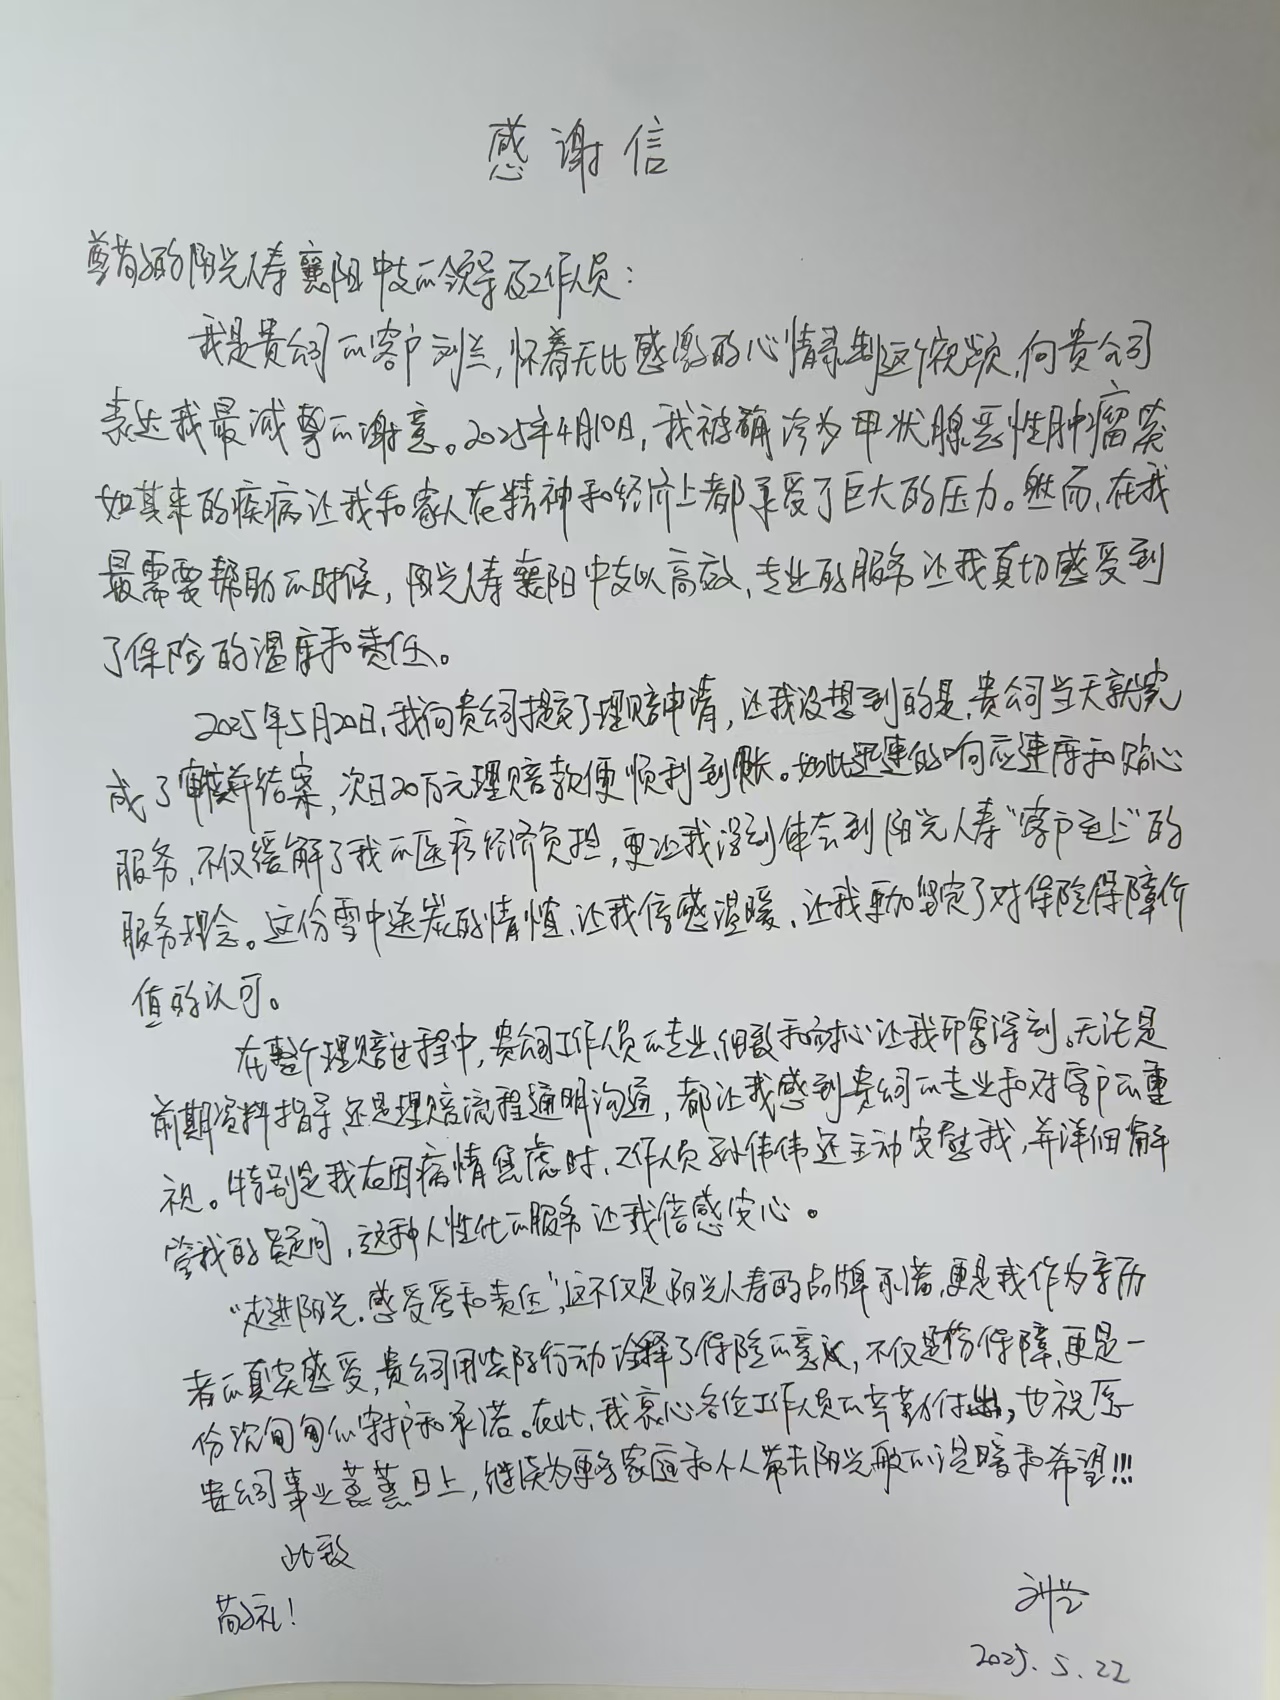 感谢信
尊敬的阳光人寿襄阳中支的领导及工作人员：
我是贵公司的客户刘兰，怀着无比感激的心情录制这个视频，向贵公司
表达我最诚挚的谢意。2025年4月10日，我被确诊为甲状腺恶性肿瘤突
如其来的疾病让我和家人在精神和经济上都承受了巨大的压力。然而，在我
最需要帮助的时候，阳光人寿襄阳中支以高效，专业的服务让我真切感受到
了保险的温度和责任。
2025年5月20日，我向贵公司提交了理赔申请，让我没想到的是，贵公司当天就完
成了审核并结案，次日20万元理赔款便顺利到账。如此迅速的响应速度和贴心
服务，不仅缓解了我的医疗经济负担，更让我深刻体会到阳光人寿“客户至上”的
服务理念。这份雪中送炭的情谊，让我倍感温暖，让我更加坚定了对保险保障价
值的认可。
在整个理赔过程中，贵公司工作人员的专业、细致和耐心让我印象深刻。无论是
前期资料指导，还是理赔流程透明沟通，都让我感到贵公司的专业和对客户的重
视。特别是我在因病情焦虑时，工作人员孙伟伟还主动安慰我，并详细解
答我的疑问，这种人性化的服务让我倍感安心。
“走进阳光，感受爱和责任”，这不仅是阳光人寿的品牌承诺，更是我作为亲历
者的真实感受，贵公司用实际行动诠释了保险的意义，不仅是份保障，更是一
份沉甸甸的守护和承诺。在此，我衷心各位工作人员的辛勤付出，也祝愿
贵公司事业蒸蒸日上，继续为更多家庭和个人带去阳光般的温暖和希望!!!
此致
敬礼！
刘兰
2025.5.22